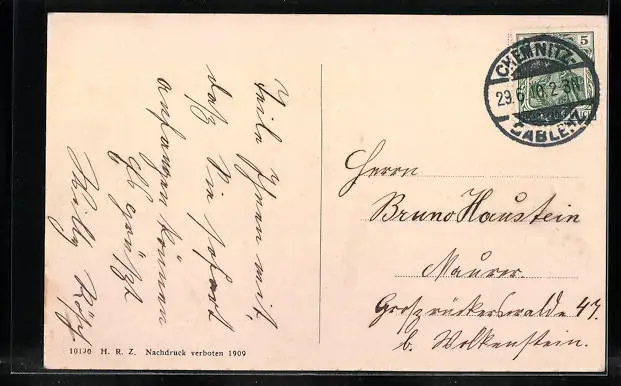 Teile Ihnen mit,
daß Sie sofort
anfangen können
Es grüßt
Willy
10130 H. R. Z. Nachdruck verboten 1909
5
CHEMNITZ-
29.6.10.2-3N
GABLENZ
Herrn
Bruno Haustein
Maurer.
Großrückerswalde 47.
b. Wolkenstein.